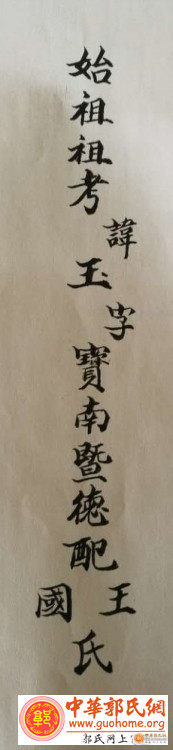 始祖祖考諱玉字寶南暨德配王國氏
中華郭氏網
www.guohome.org
郭氏网上